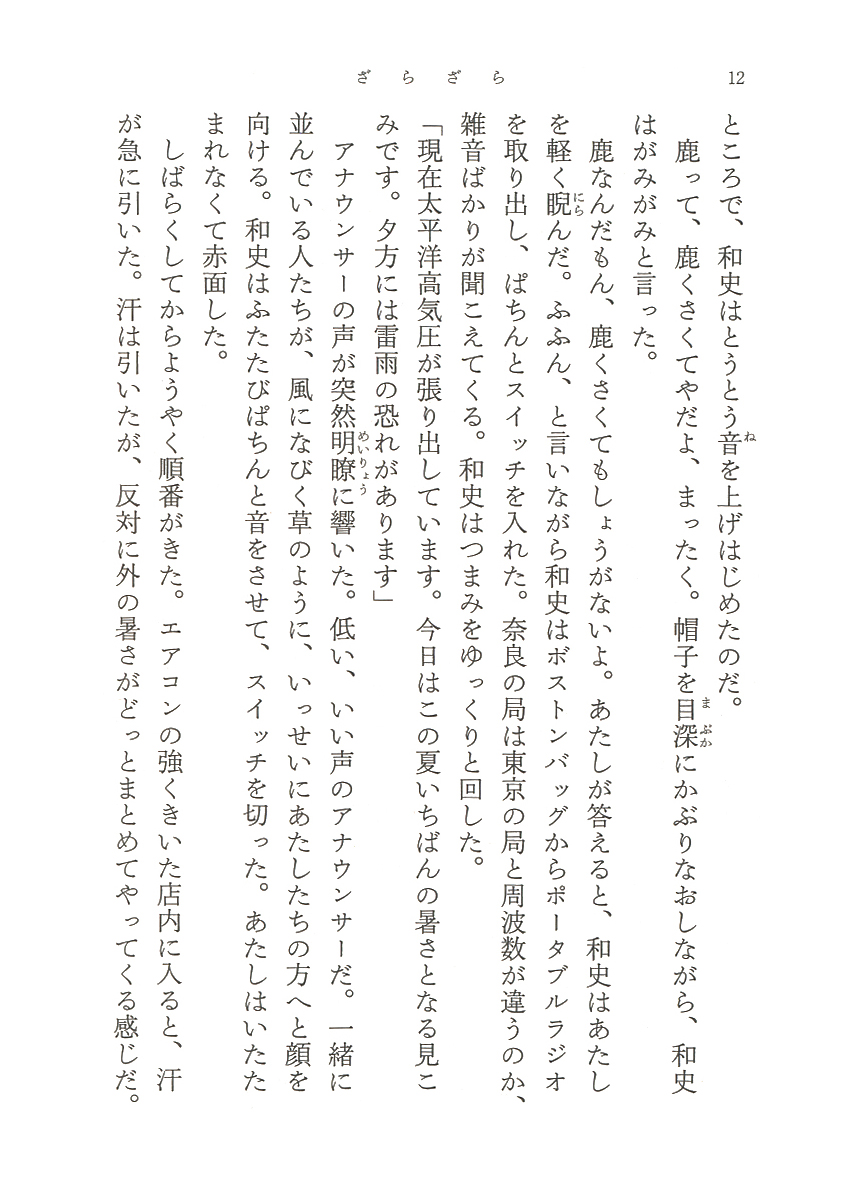 ざらざら
12
ところで、和史はとうとう音を上げはじめたのだ。
鹿って、鹿くさくてやだよ、まったく。帽子を目深にかぶりなおしながら、和史
はがみがみと言った。
鹿なんだもん、鹿くさくてもしょうがないよ。あたしが答えると、和史はあたし
を軽く睨んだ。ふふん、と言いながら和史はボストンバッグからポータブルラジオ
を取り出し、ぱちんとスイッチを入れた。奈良の局は東京の局と周波数が違うのか、
雑音ばかりが聞こえてくる。和史はつまみをゆっくりと回した。
「現在太平洋高気圧が張り出しています。今日はこの夏いちばんの暑さとなる見こ
みです。夕方には雷雨の恐れがあります」
アナウンサーの声が突然明瞭に響いた。低い、いい声のアナウンサーだ。一緒に
並んでいる人たちが、風になびく草のように、いっせいにあたしたちの方へと顔を
向ける。和史はふたたびぱちんと音をさせて、スイッチを切った。あたしはいたた
まれなくて赤面した。
しばらくしてからようやく順番がきた。エアコンの強くきいた店内に入ると、汗
が急に引いた。汗は引いたが、反対に外の暑さがどっとまとめてやってくる感じだ。
ね
まぶか
にら
めいりょう